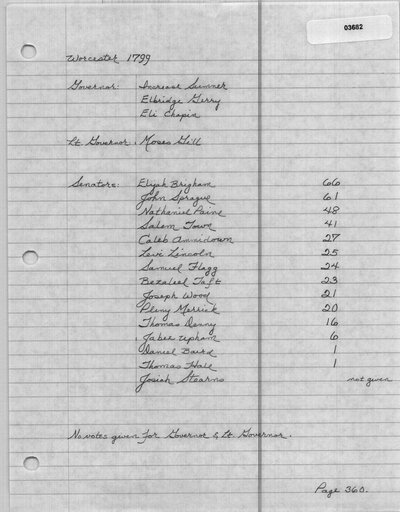 03682
Worcester 1799
Governor: Increase Sumner
Elbridge Gerry
Eli Chapin
Lt. Governor: Moses Gill
Senators: Elijah Brigham 66
John Sprague 61
Nathaniel Paine 48
Salem Town 41
Caleb Ammidown 27
Levi Lincoln 25
Samuel Flagg 24
Bezaleel Taft 23
Joseph Wood 21
Pliny Merrick 20
Thomas Denny 16
Jabez Upham 6
Daniel Baird 1
Thomas Hale 1
Josiah Stearns not given
No votes given for Governor & Lt. Governor.
Page 360.